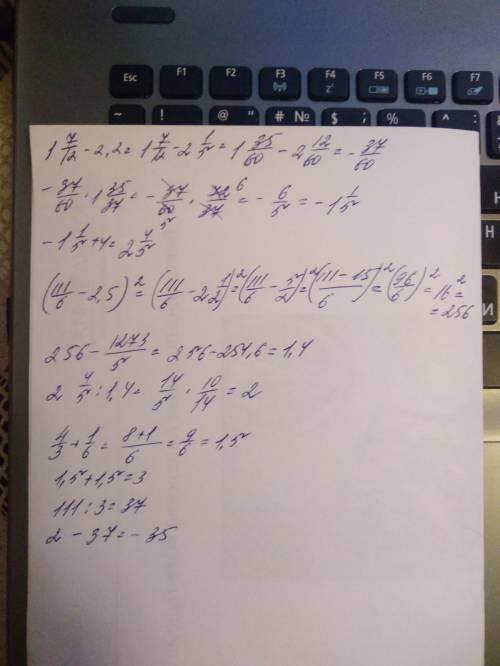 Esc F1 F2 F3 F4 F5 F6 F7
~ ! @ " # № $ % ^ :
1 7/12 - 2,2 = 1 7/12 - 2 1/5 = 1 35/60 - 2 12/60 = - 37/60
- 37/60 · 1 35/37 = - 37/60 · 72/37 = - 6/5 = - 1 1/5
6
5
- 1 1/5 + 4 = 2 4/5
(111/6 - 2,5)² = (111/6 - 2 1/2)² = (111/6 - 5/2)² = (111 - 15/6)² = (96/6)² = 16² =
= 256
256 - 1273/5 = 256 - 254,6 = 1,4
2 4/5 : 1,4 = 14/5 · 10/14 = 2
4/3 + 1/6 = 8+1/6 = 9/6 = 1,5
1,5 + 1,5 = 3
111 : 3 = 37
2 - 37 = - 35